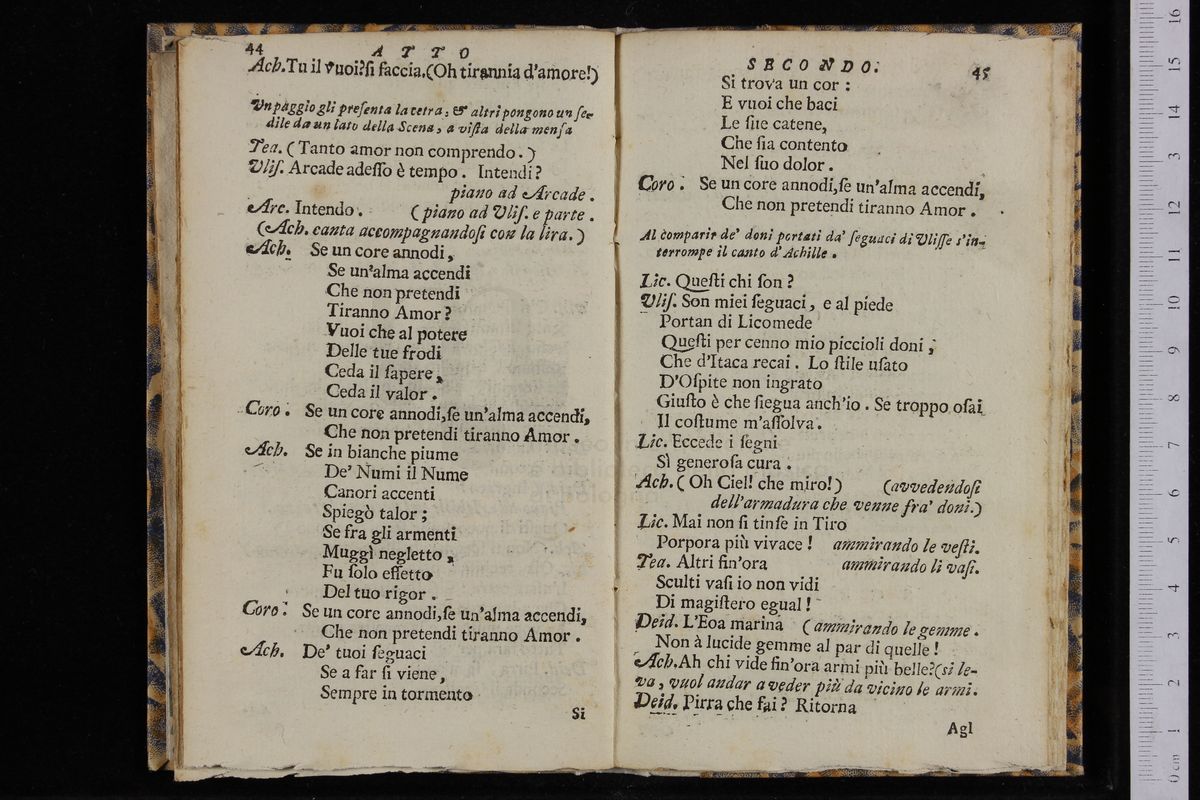 44
A T T O
Ach. Tu il vuoi? ſi faccia. (Oh tirannia d'amore!)
Vn paggio gli preſenta la cetra, & altri pongono un ſe-
dile da un lato della Scena, a viſta della menſa
Tea. (Tanto amor non comprendo.)
Vliſ. Arcade adeſſo è tempo. Intendi?
piano ad Arcade.
Arc. Intendo. (piano ad Vliſ. e parte.
(Ach. canta accompagnandoſi con la lira.)
Ach. Se un core annodi,
Se un'alma accendi
Che non pretendi
Tiranno Amor?
Vuoi che al potere
Delle tue frodi
Ceda il ſapere,
Ceda il valor.
Coro. Se un core annodi, ſe un'alma accendi,
Che non pretendi tiranno Amor.
Ach. Se in bianche piume
De' Numi il Nume
Canori accenti
Spiegò talor;
Se fra gli armenti
Muggì negletto,
Fu ſolo effetto
Del tuo rigor.
Coro. Se un core annodi, ſe un'alma accendi,
Che non pretendi tiranno Amor.
Ach. De' tuoi ſeguaci
Se a far ſi viene,
Sempre in tormento
Si
SECONDO.
45
Si trova un cor:
E vuoi che baci
Le ſue catene,
Che ſia contento
Nel ſuo dolor.
Coro. Se un core annodi, ſe un'alma accendi,
Che non pretendi tiranno Amor.
Al comparir de' doni portati da' ſeguaci di Vliſſe s'in-
terrompe il canto d'Achille.
Lic. Queſti chi ſon?
Vliſ. Son miei ſeguaci, e al piede
Portan di Licomede
Queſti per cenno mio piccioli doni,
Che d'Itaca recai. Lo ſtile uſato
D'Oſpite non ingrato
Giuſto è che ſiegua anch'io. Se troppo oſai
Il coſtume m'aſſolva.
Lic. Eccede i ſegni
Sì generoſa cura.
Ach. (Oh Ciel! che miro!) (avvedendoſi
dell'armadura che venne fra' doni.)
Lic. Mai non ſi tinſe in Tiro
Porpora più vivace! ammirando le veſti.
Tea. Altri fin'ora ammirando li vaſi.
Sculti vaſi io non vidi
Di magiſtero egual!
Deid. L'Eoa marina (ammirando le gemme.
Non à lucide gemme al par di quelle!
Ach. Ah chi vide fin'ora armi più belle? (si le-
va, vuol andar a veder più da vicino le armi.
Deid. Pirra che fai? Ritorna
Agl
0 cm 1 2 3 4 5 6 7 8 9 10 11 12 13 14 15 16